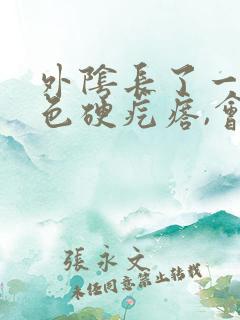 外陰長了一
色硬疙瘩,會
張永文
未经同意禁止转载